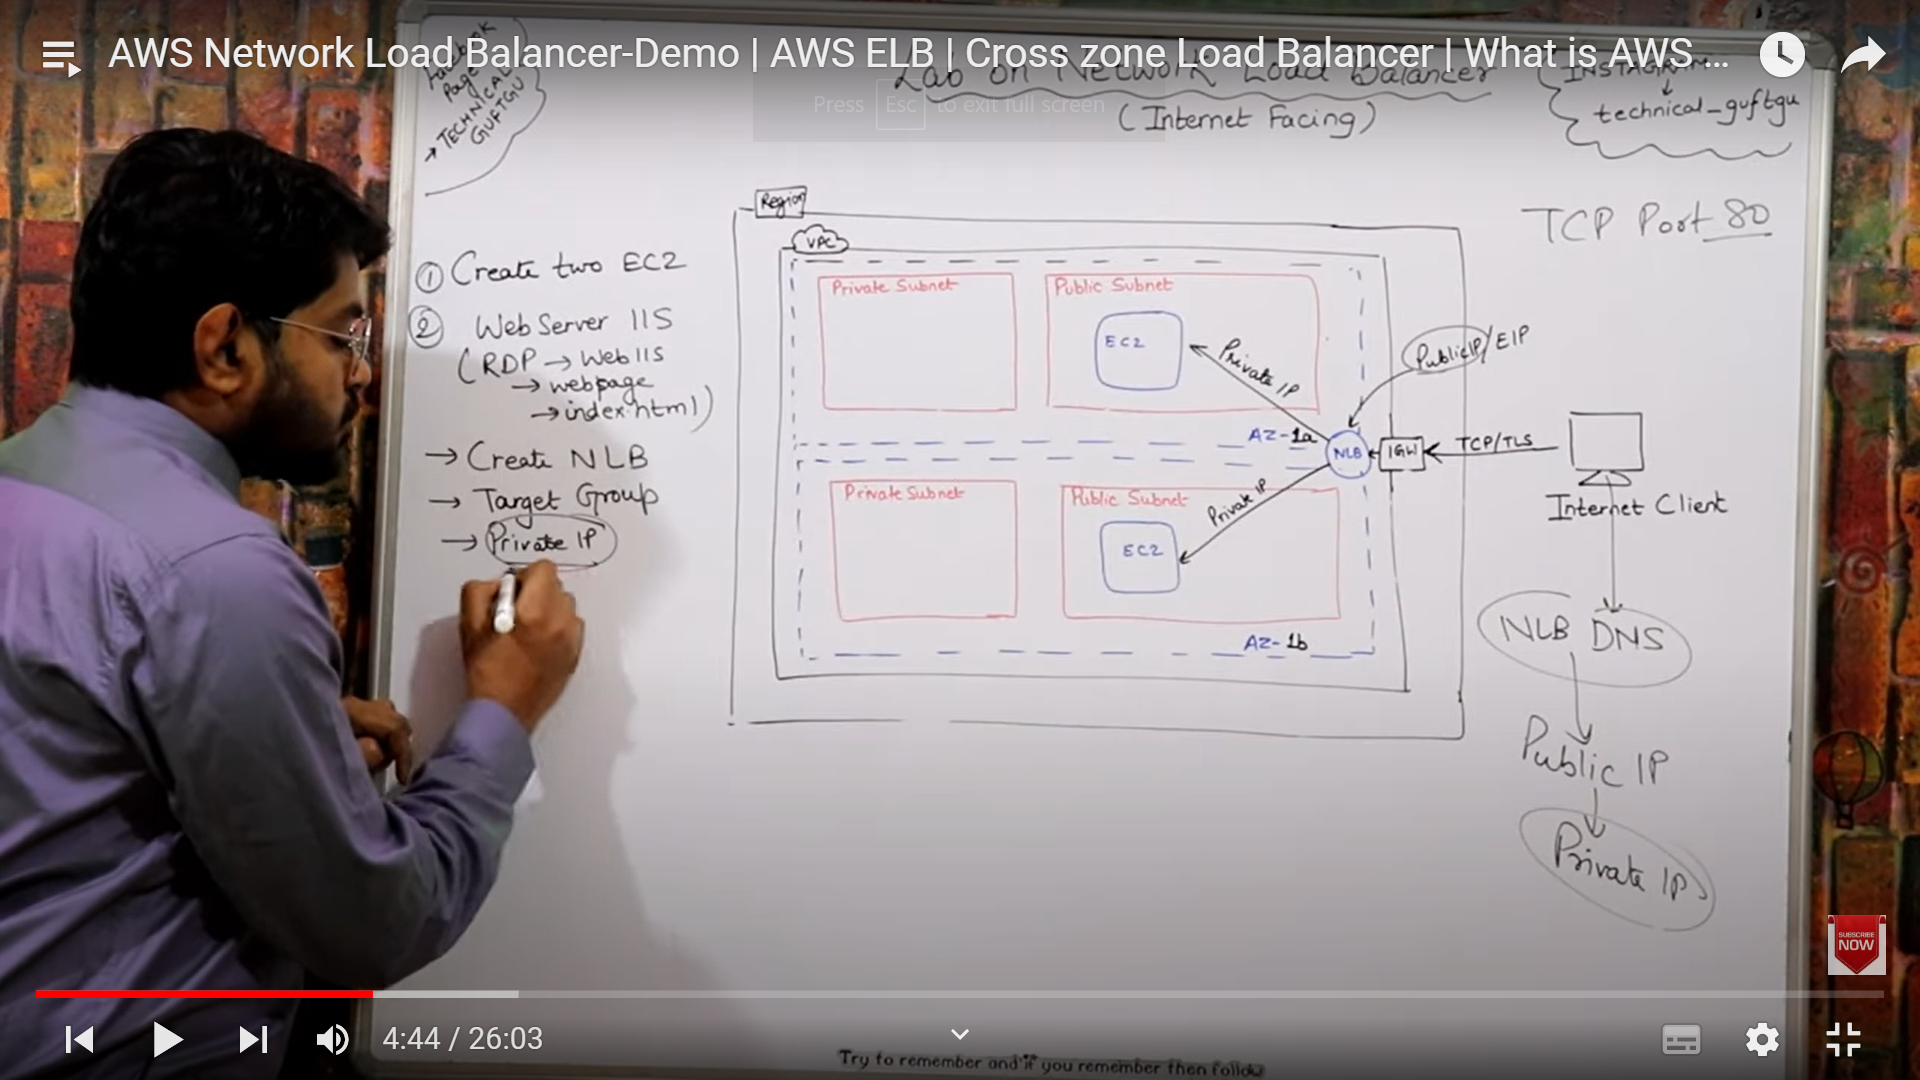 AWS Network Load Balancer-Demo | AWS ELB | Cross zone Load Balancer | What is AWS ...
Press Esc to exit full screen
Facebook
Page
→ TECHNICAL
GUFTGU
Lab on Network Load Balancer
(Internet Facing)
INSTAGRAM
↓
technical_guftgu
TCP Port 80
① Create two EC2
② Web Server IIS
(RDP → Web IIS
→ webpage
→ index.html)
→ Create NLB
→ Target Group
→ Private IP
Region
VPC
Private Subnet
Public Subnet
EC2
Private IP
AZ-1a
Public IP/EIP
NLB
IGW
TCP/TLS
Internet Client
Private Subnet
Public Subnet
EC2
Private IP
AZ-1b
NLB DNS
Public IP
Private IP
SUBSCRIBE
NOW
4:44 / 26:03
Try to remember and if you remember then follow